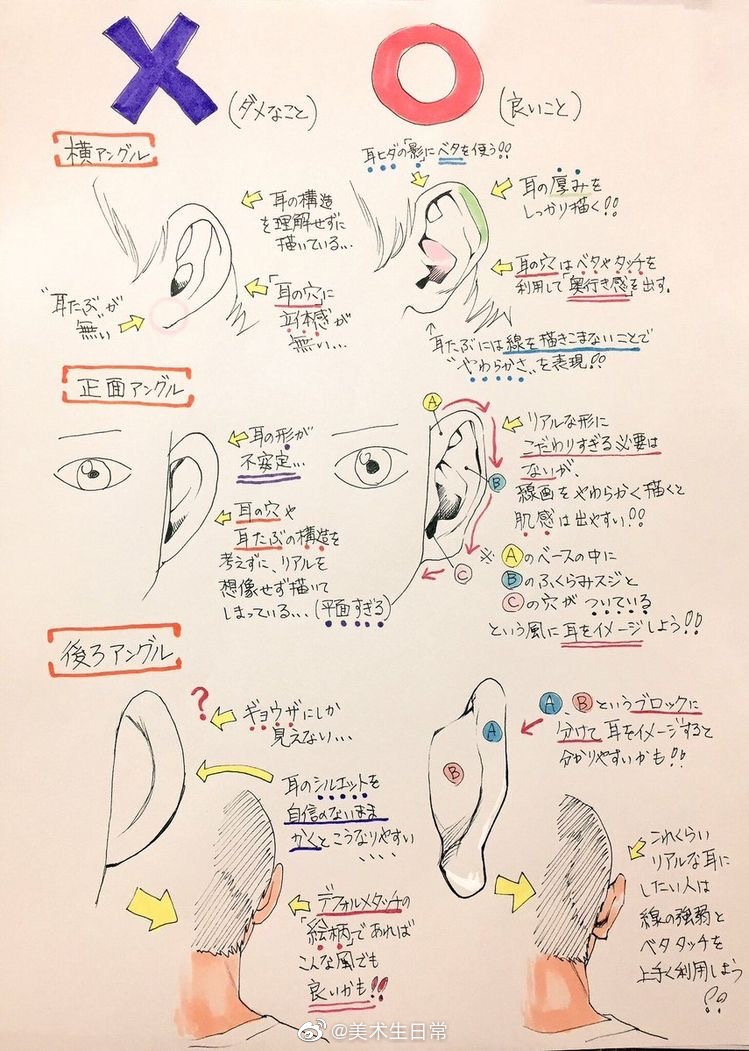 (ダメなこと)
(良いこと)
横アングル
耳の構造
を理解せずに
描いている...
「耳の穴に
立体感が
無い...
"耳たぶ"が
無い
耳ヒダの「影」にベタを使う!!
耳の厚みを
しっかり描く!!
耳の穴はベタやタッチを
利用して「奥行き感」を出す。
↑
耳たぶには線を描きこまないことで
"やわらかさ"を表現!!
正面アングル
耳の形が
不安定...
耳の穴や
耳たぶの構造を
考えずに、リアルを
想像せず描いて
しまっている...(平面すぎる)
A
B
C
リアルな形に
こだわりすぎる必要は
ないが、
線画をやわらかく描くと
肌感は出やすい!!
※
Aのベースの中に
Bのふくらみスジと
Cの穴がついている
という風に耳をイメージしよう!!
後ろアングル
?
ギョウザにしか
見えない...
耳のシルエットを
自信のないまま
かくとこうなりやすい
、、、、
デフォルメタッチの
「絵柄」であれば
こんな風でも
良いかも!!
A
B
A、Bというブロックに
分けて耳をイメージすると
分かりやすいかも!!
これくらい
リアルな耳に
したい人は
線の強弱と
ベタタッチを
上手く利用しよう
!!
@美术生日常